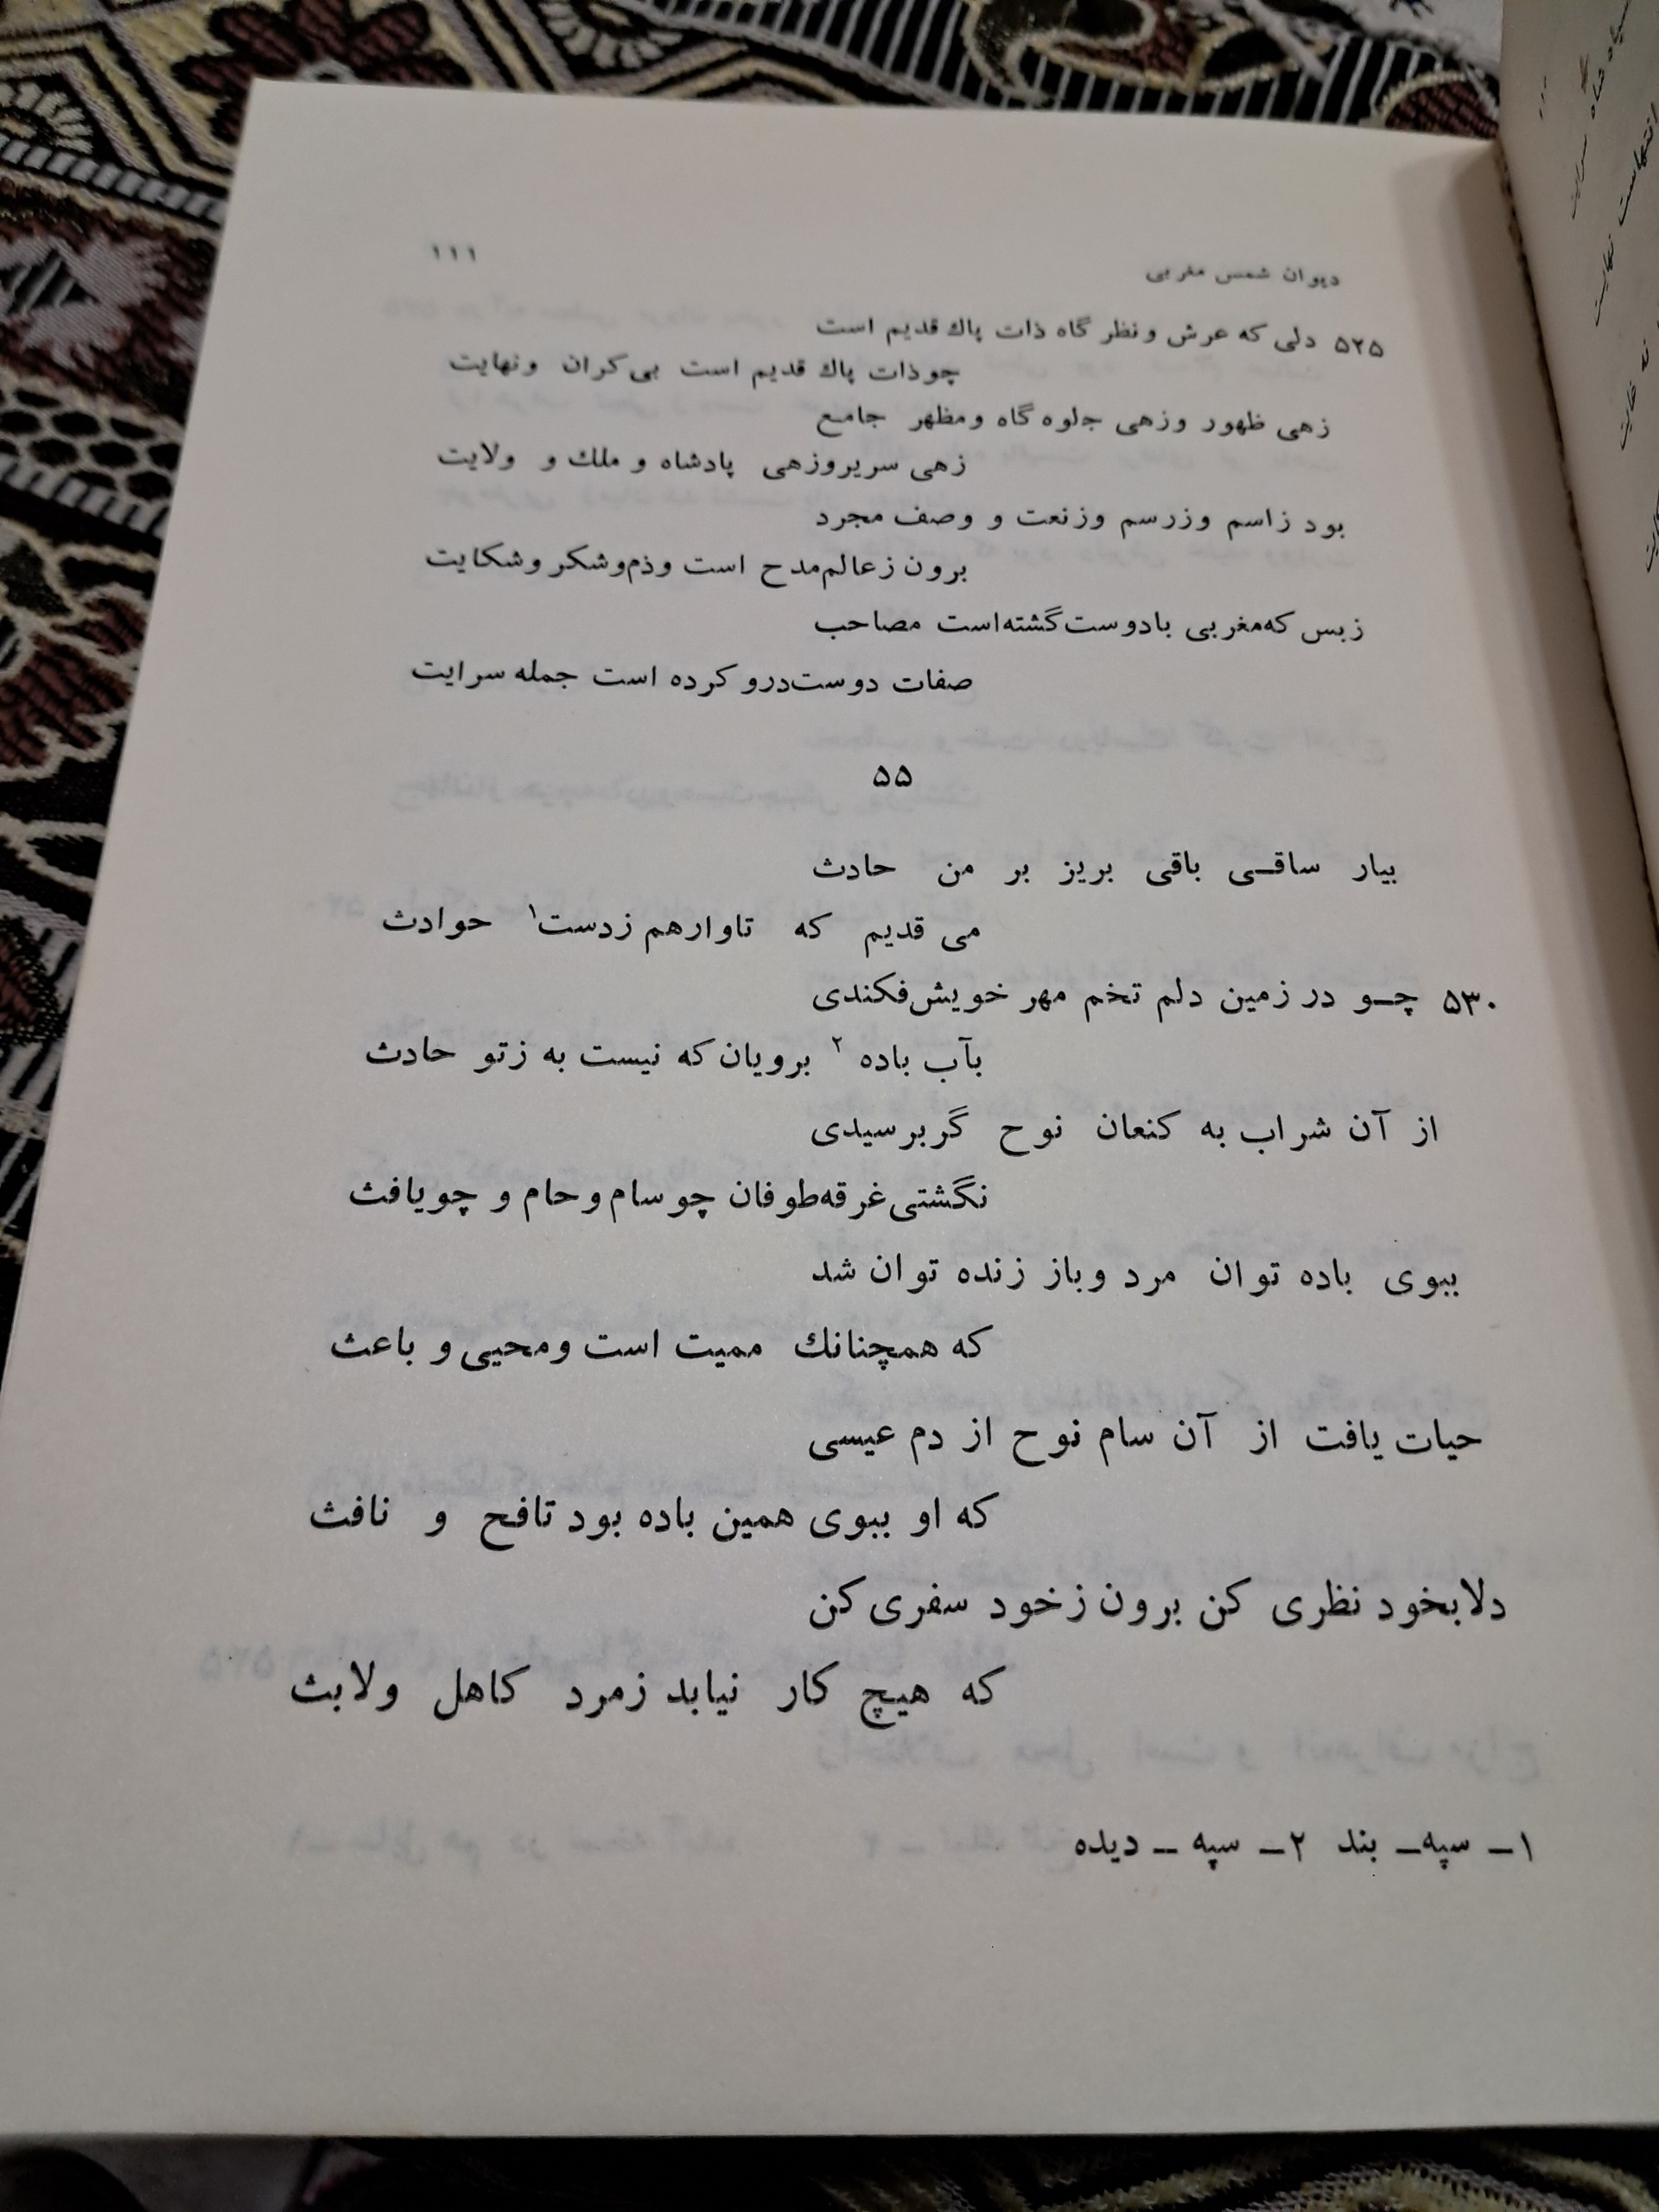 دیوان شمس مغربی ۱۱۱
۵۲۵ دلی که عرش و نظر گاه ذات پاك قدیم است
چو ذات پاك قدیم است بی کران و نهایت
زهی ظهور وزهی جلوه گاه ومظهر جامع
زهی سریروزهی پادشاه و ملك و ولایت
بود زاسم وزرسم وزنعت و وصف مجرد
برون زعالم‌مدح است وذم‌وشکر وشکایت
زبس که‌مغربی بادوست‌گشته‌است مصاحب
صفات دوست‌درو کرده است جمله سرایت
۵۵
بیار ساقی باقی بریز بر من حادث
می قدیم که تاوارهم زدست۱ حوادث
۵۳۰ چو در زمین دلم تخم مهر خویش‌فکندی
بآب باده ۲ برویان که نیست به زتو حادث
از آن شراب به کنعان نوح گربرسیدی
نگشتی‌غرقه‌طوفان چو سام و حام و چویافث
ببوی باده توان مرد وباز زنده توان شد
که همچنانك ممیت است ومحیی و باعث
حیات یافت از آن سام نوح از دم عیسی
که او ببوی همین باده بود تافح و نافث
دلابخود نظری کن برون زخود سفری کن
که هیچ کار نیابد زمرد کاهل ولابث
۱ــ سپه‌ــ بند ۲ــ سپه ــ دیده